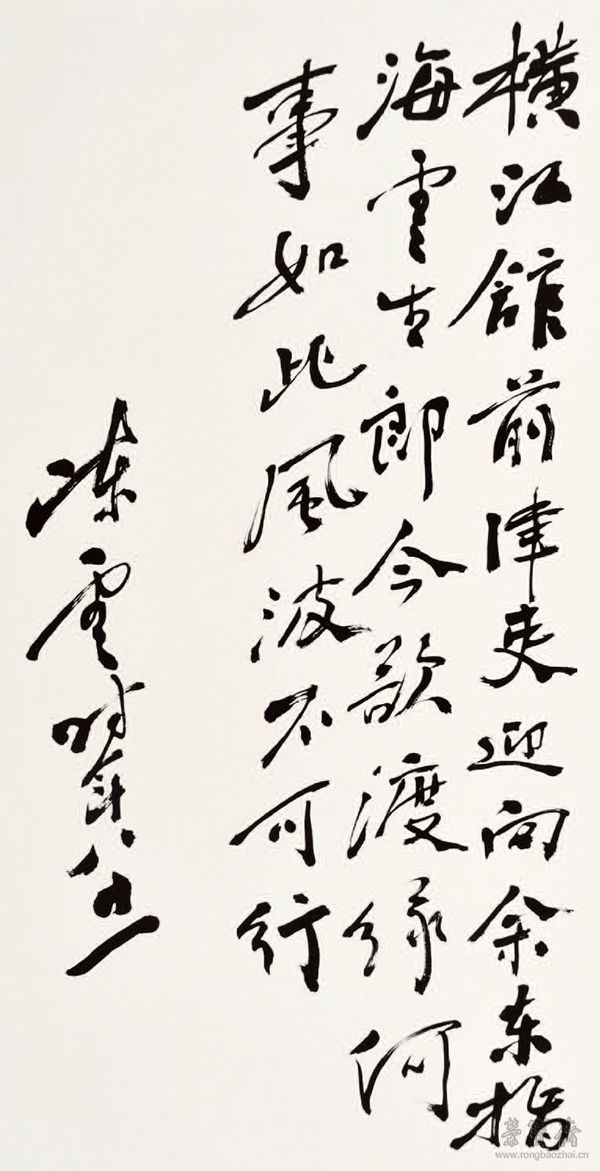 横江舘前津吏迎向余东指
海雲生郎今欲渡缘何
事如此風波不可行
陈雲时年八十一
榮寶齋
www.rongbaozhai.cn